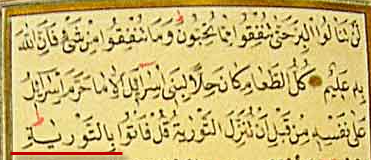 لَنْ تَنَالُوا الْبِرَّ حَتّٰى تُنْفِقُوا مِمَّا تُحِبُّونَ وَمَا تُنْفِقُوا مِنْ شَيْءٍ فَاِنَّ اللّٰهَ
بِهِ عَلِيمٌ كُلُّ الطَّعَامِ كَانَ حِلًّا لِبَنِى اِسْرَآئِلَ اِلَّا مَا حَرَّمَ اِسْرَآئِلُ
عَلٰى نَفْسِهِ مِنْ قَبْلِ اَنْ تُنَزَّلَ التَّوْرٰيةُ قُلْ فَاْتُوا بِالتَّوْرٰيةِ